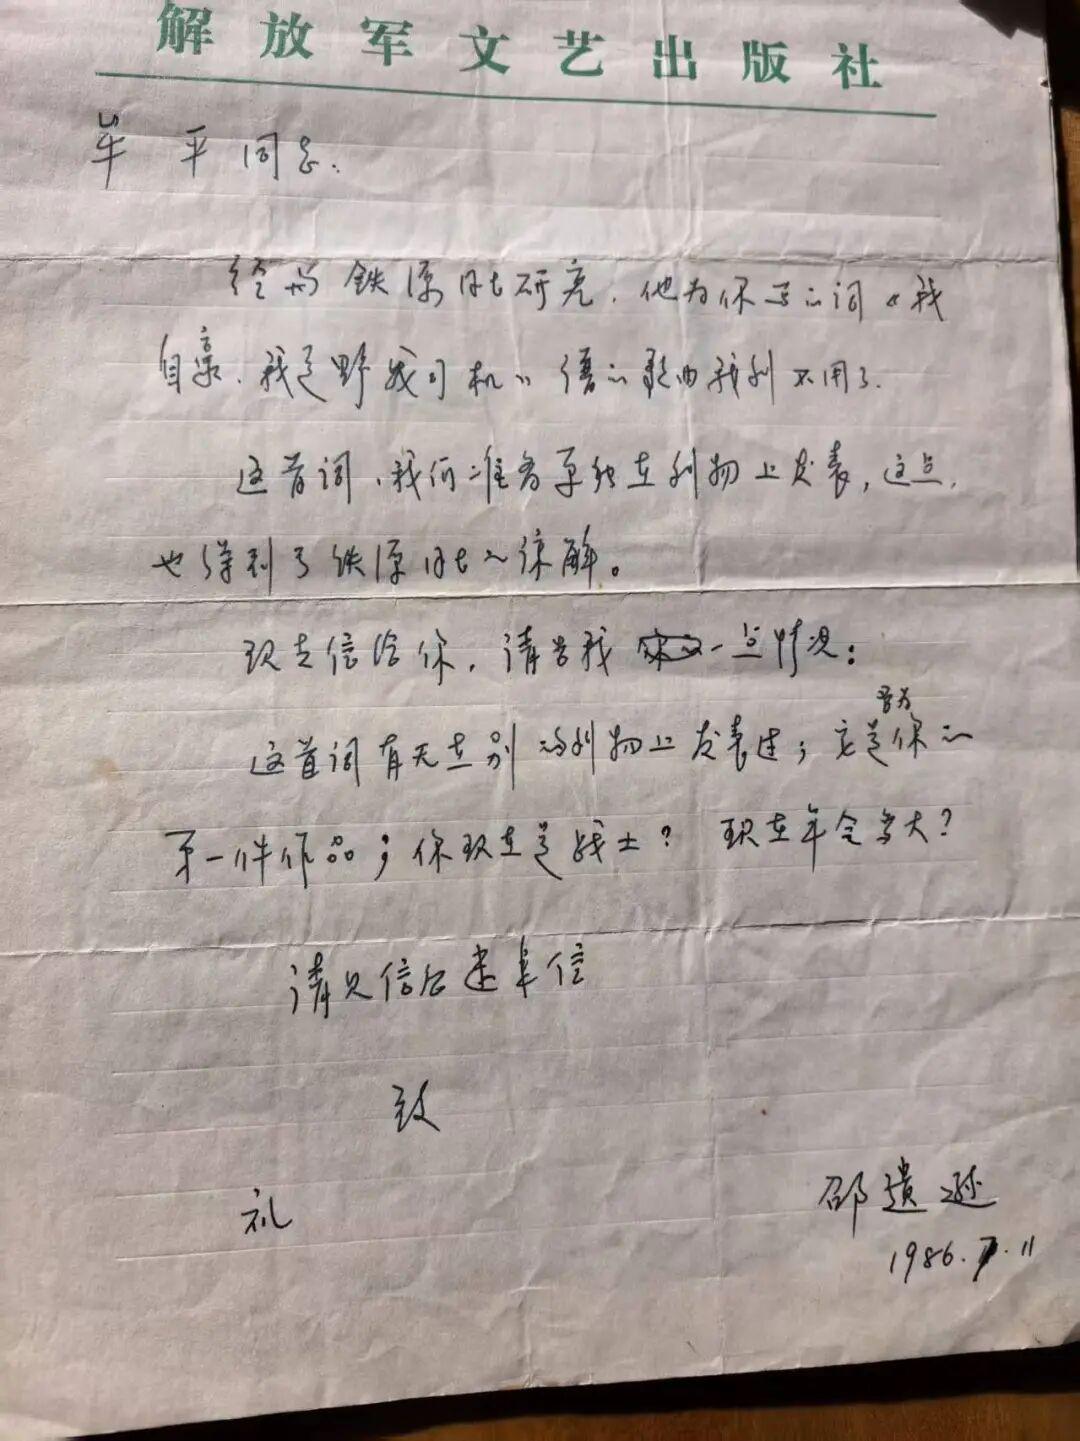 解放军文艺出版社
牟平同志:
经与铁源同志研究,他为你写的词《我
自豪,我是野战司机》谱的歌曲我刊不用了.
这首词,我们准备单独在刊物上发表,这点,
也得到了铁源同志的谅解。
现去信给你,请告我一点情况:
这首词有无在别的刊物上发表过;它是否为你的
第一件作品;你现在是战士?现在年令多大?
请见信后速来信
致
礼
邵遗逊
1986.7.11